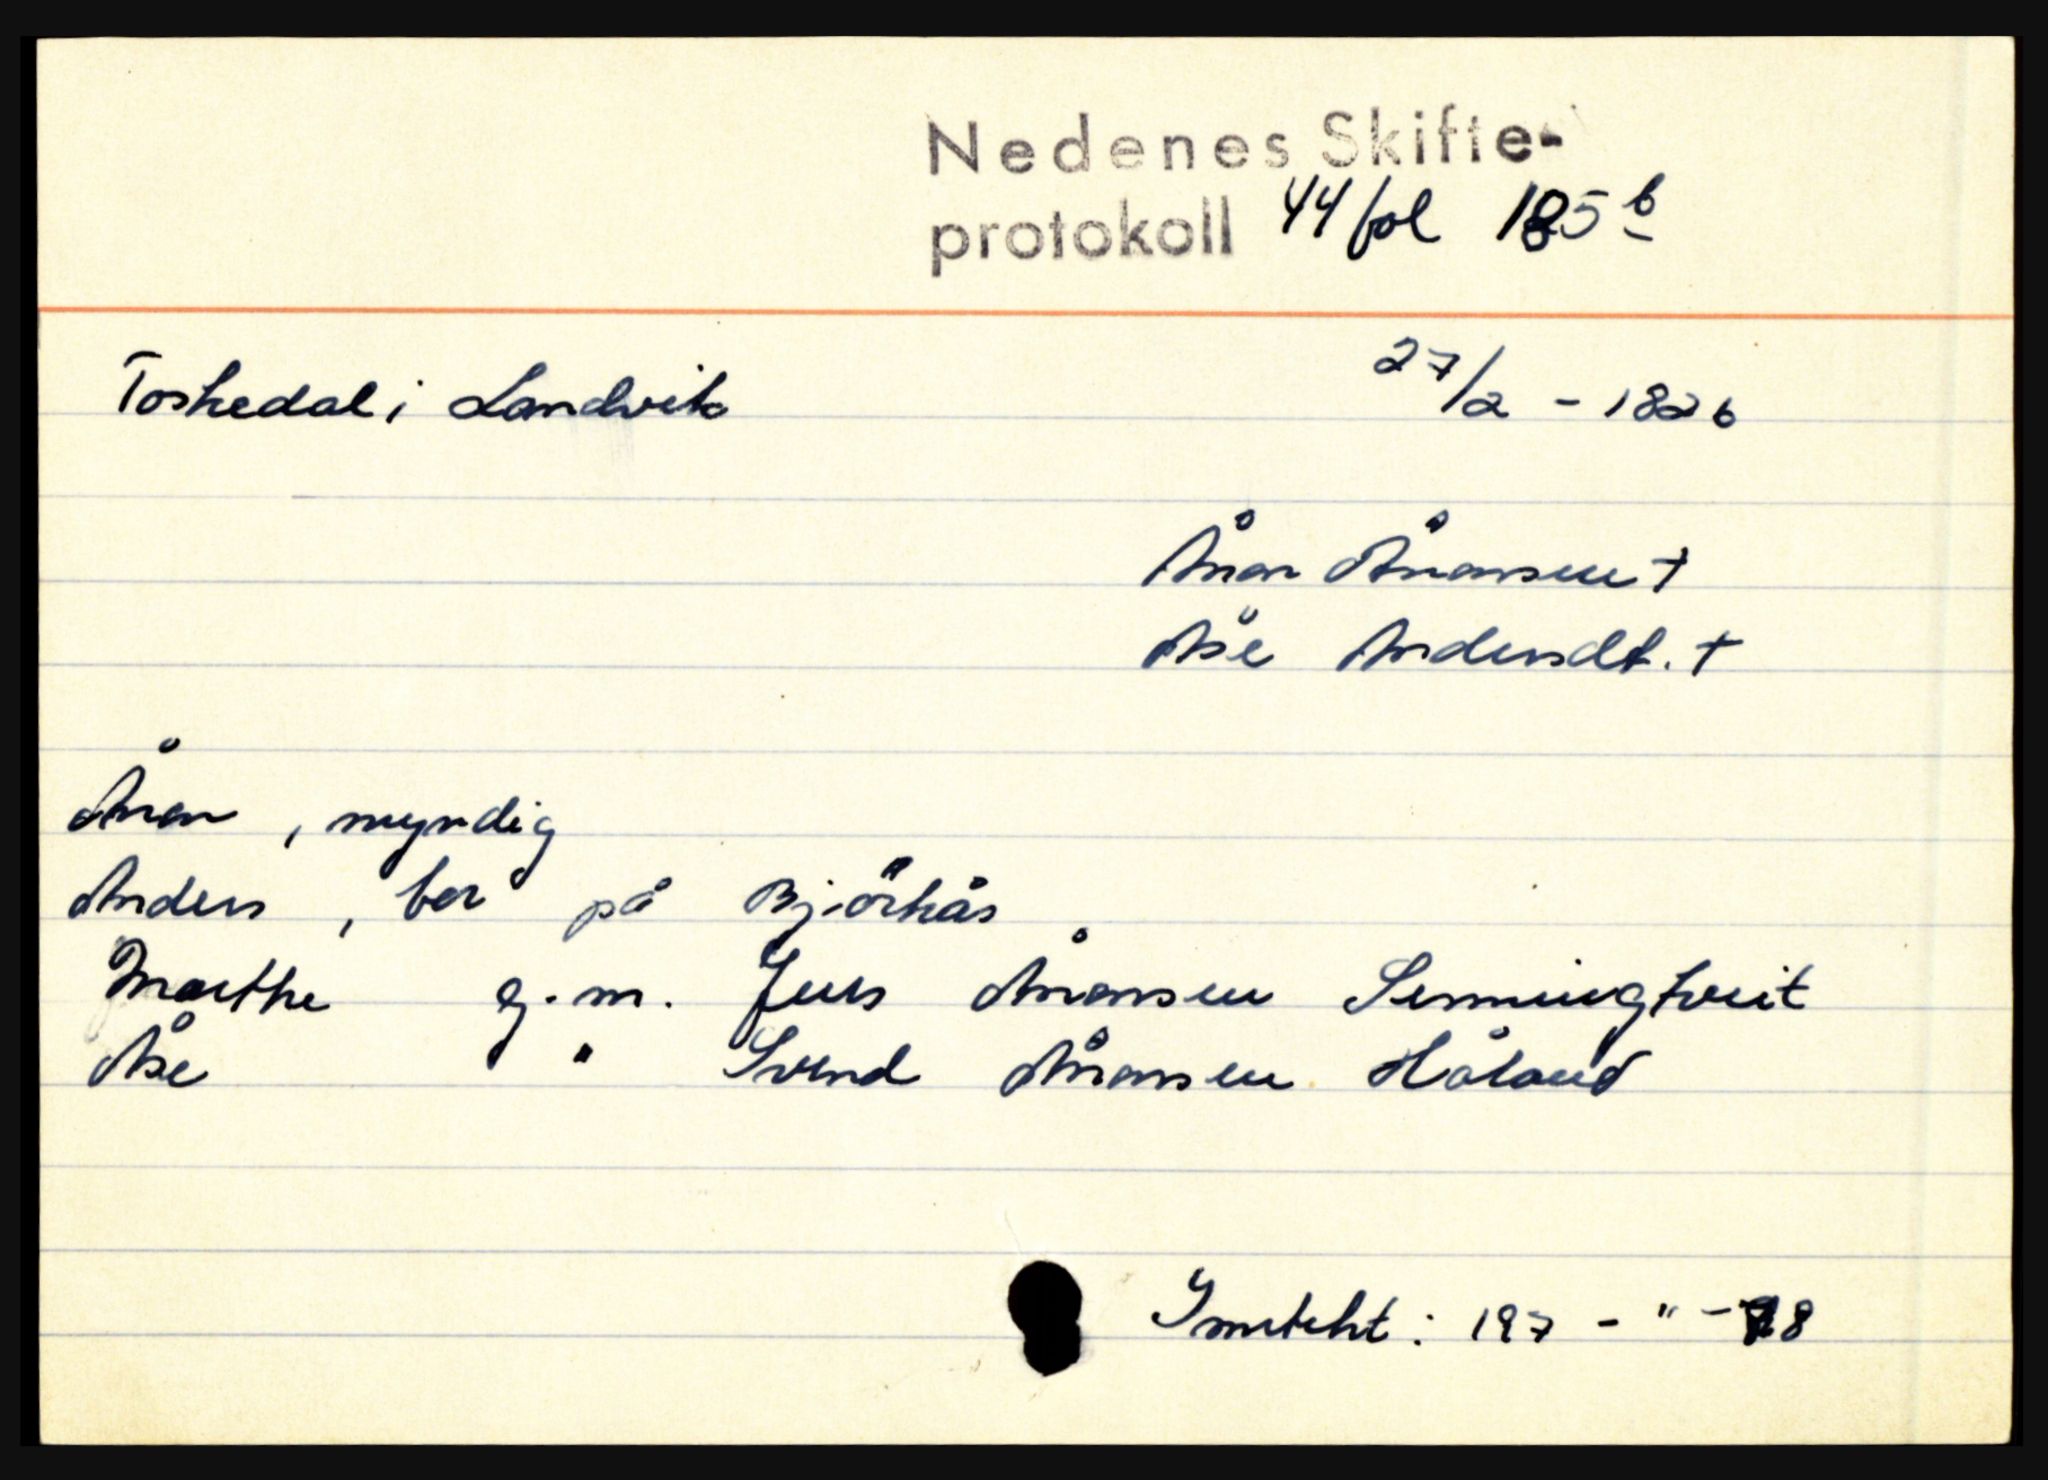 Nedenes Skifte-
protokoll 44 fol 185 b
Toskedal i Landvik 27/2 - 1826
Ånon Ånonsen +
Åse Andersdt. +
Ånon , myndig
Anders , bor på Björåås
Marthe g. m. Jens Ånonsen Senningtveit
Åse " Svend Ånonsen Håland
Inntekt : 197 - " - 78